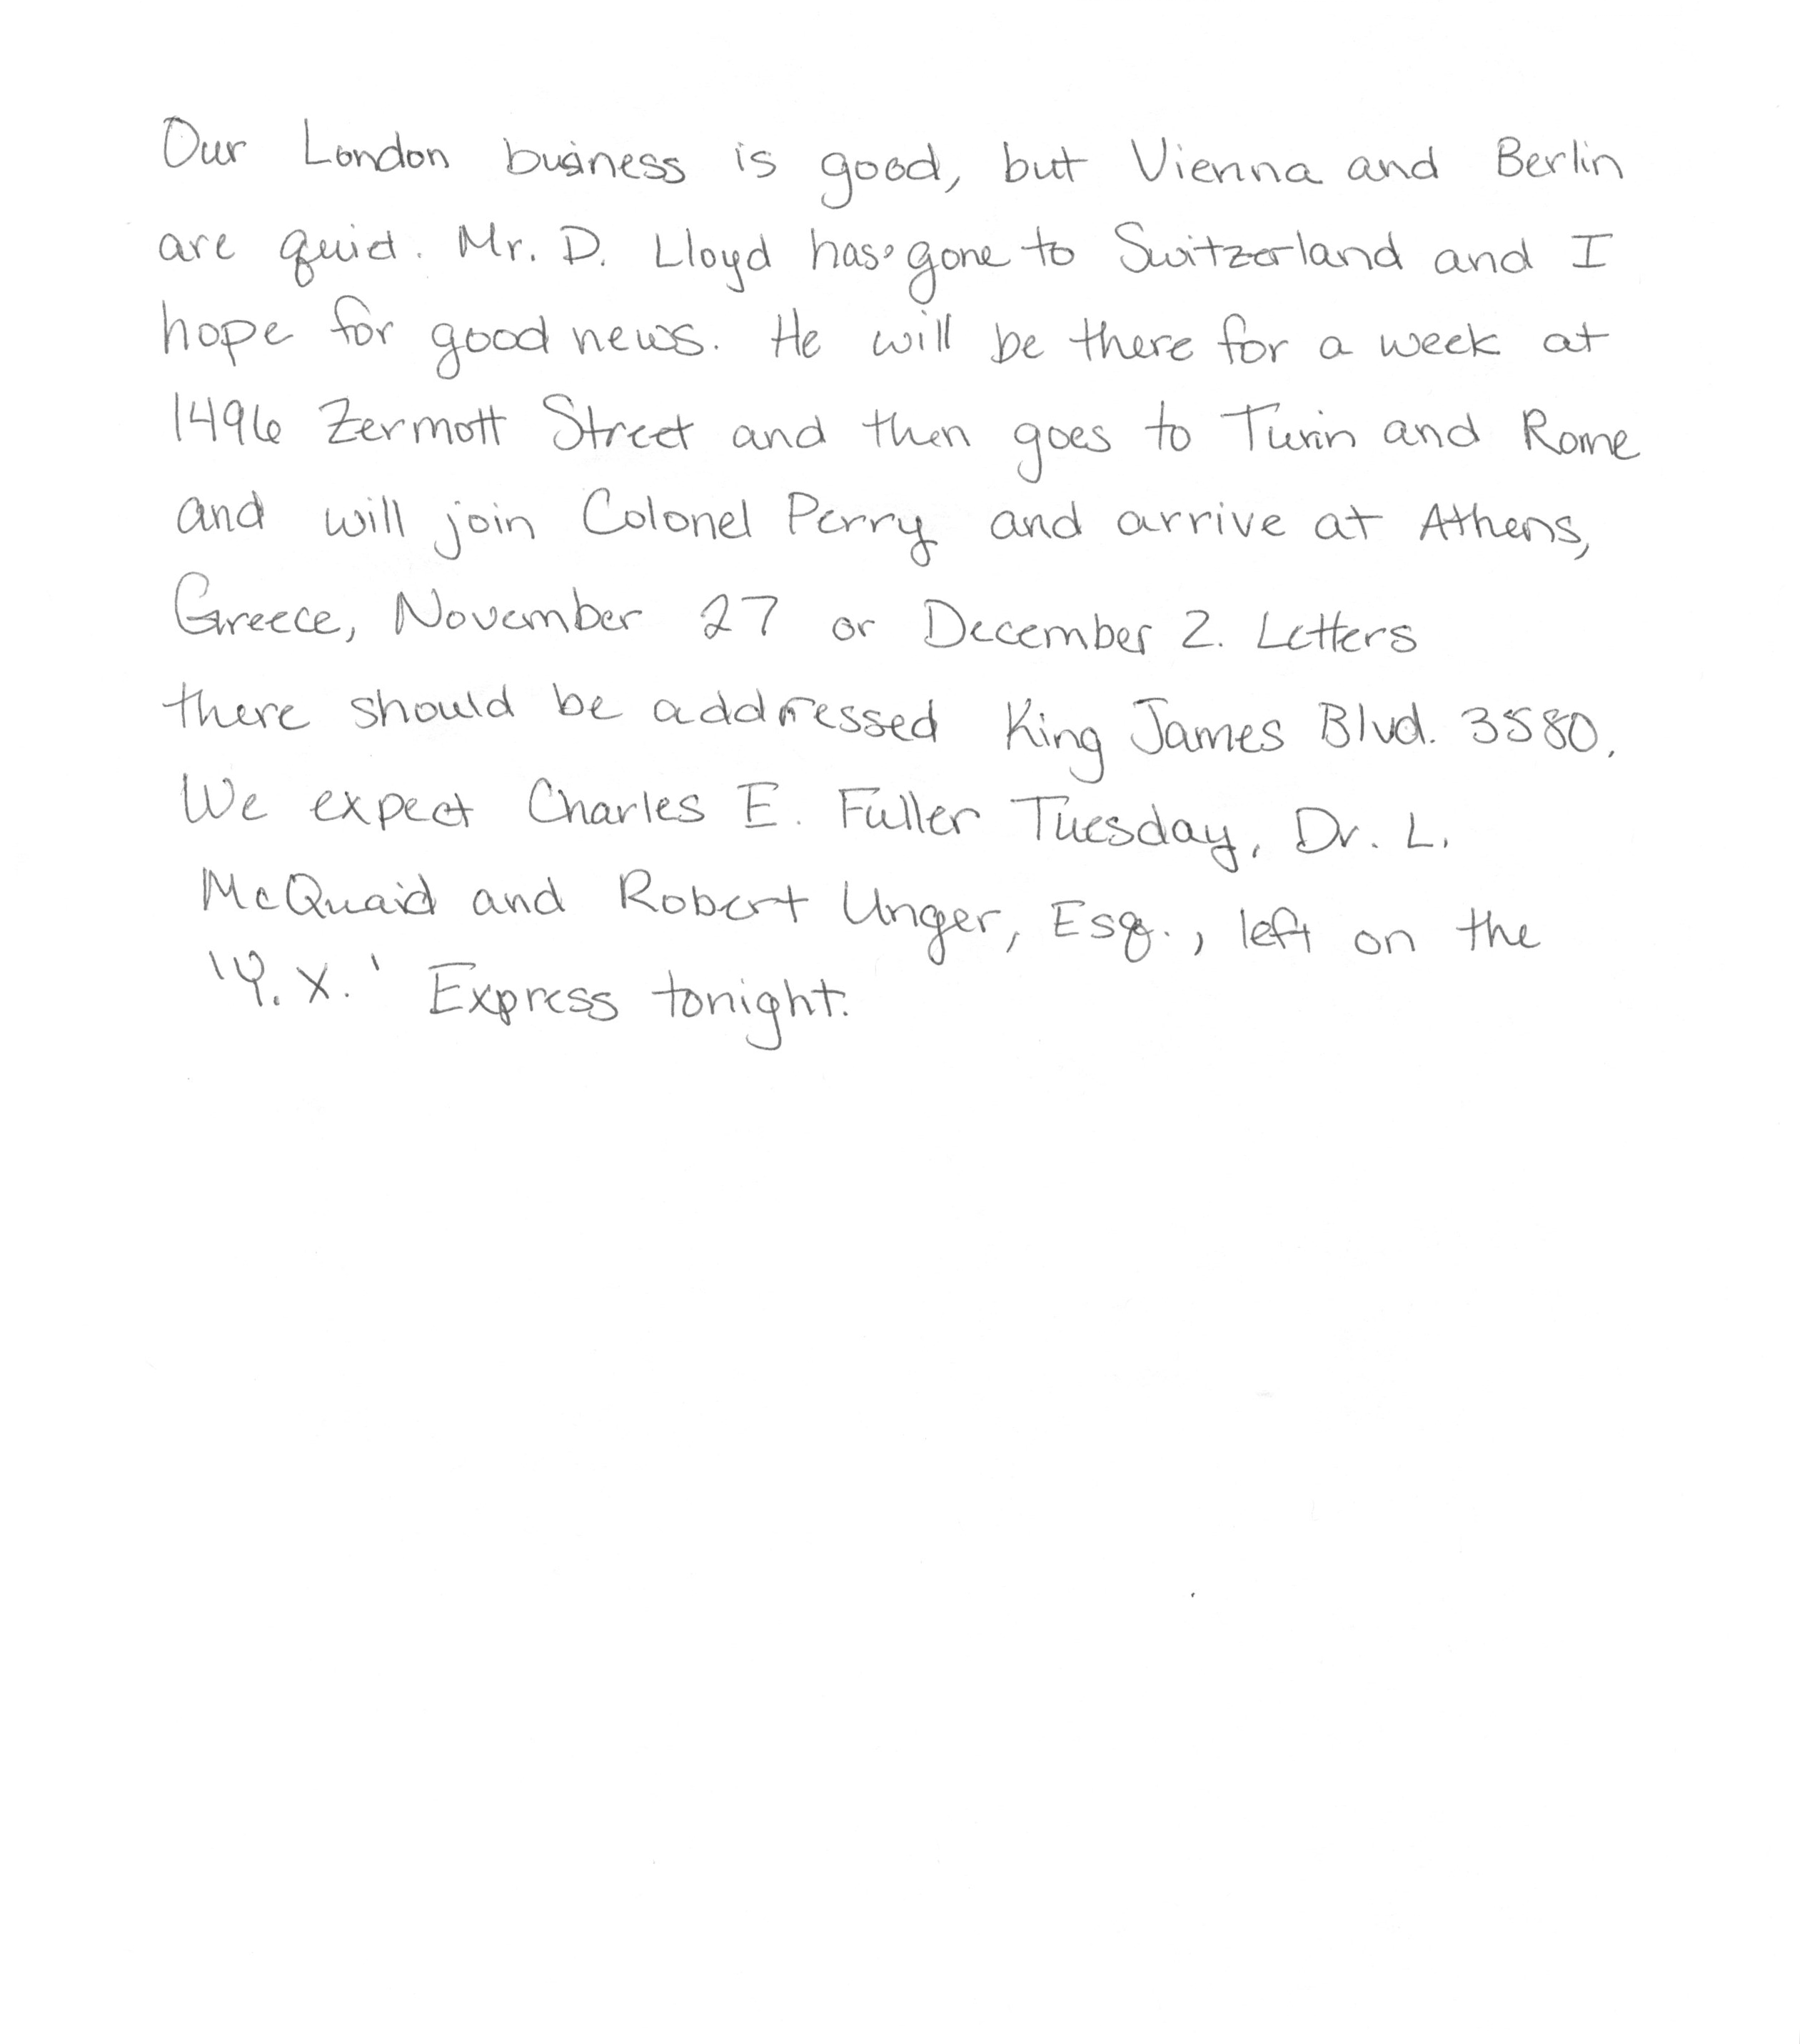 Our London business is good, but Vienna and Berlin
are quiet. Mr. D. Lloyd has gone to Switzerland and I
hope for good news. He will be there for a week at
1496 Zermott Street and then goes to Turin and Rome
and will join Colonel Perry and arrive at Athens,
Greece, November 27 or December 2. Letters
there should be addressed King James Blvd. 3580.
We expect Charles E. Fuller Tuesday, Dr. L.
McQuaid and Robert Unger, Esq., left on the
'Y.X.' Express tonight.